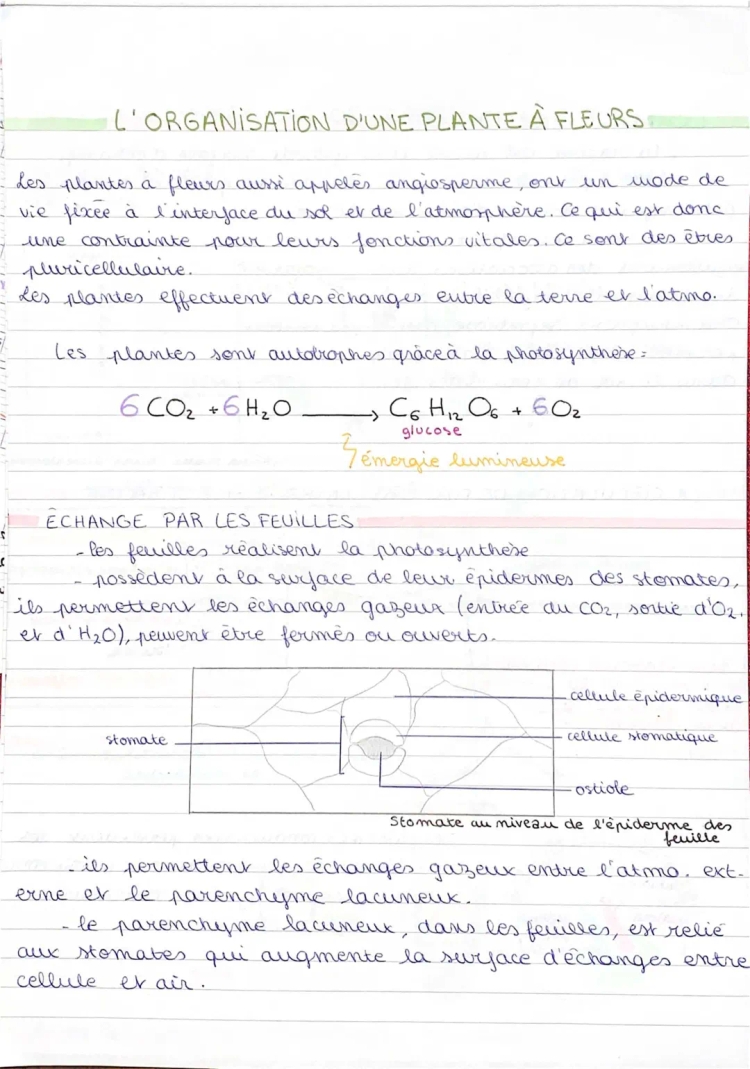 L'ORGANISATION D'UNE PLANTE À FLEURS
Les plantes à fleurs aussi appelés angiosperme, ont un mode de
vie fixée à l'interface du sol et de l'atmosphère. Ce qui est donc
une contrainte pour leurs fonctions vitales. Ce sont des êtres
pluricellulaire.
Les plantes effectuent des échanges entre la terre et l'atmo.
Les plantes sont autotrophes grâce à la photosynthèse :
6 CO₂ + 6 H₂O ⟶ C₆ H₁₂ O₆ + 6 O₂
glucose
émergie lumineuse
ÉCHANGE PAR LES FEUILLES
- les feuilles réalisent la photosynthèse
- possèdent à la surface de leur épidermes des stomates,
ils permettent les échanges gazeux (entrée du CO₂, sortie d'O₂,
et d'H₂O), peuvent être fermés ou ouverts.
cellule épidermique
stomate
cellule stomatique
ostiole
Stomate au niveau de l'épiderme des
feuille
- ils permettent les échanges gazeux entre l'atmo. ext-
erne et le parenchyme lacuneux.
- le parenchyme lacuneux, dans les feuilles, est relié
aux stomates qui augmente la surface d'échanges entre
cellule et air.